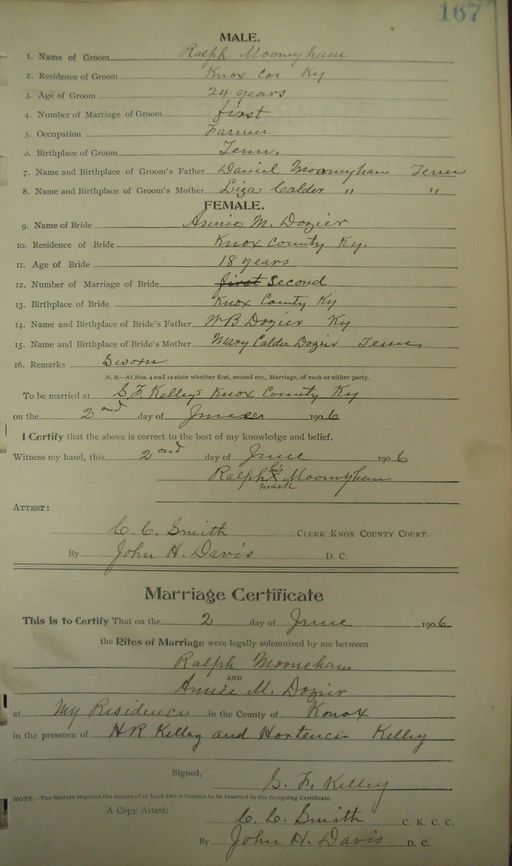 167
MALE.
1. Name of Groom Ralph Mooneyham
2. Residence of Groom Knox Cos Ky
3. Age of Groom 24 years
4. Number of Marriage of Groom first
5. Occupation Farmer
6. Birthplace of Groom Tenn.
7. Name and Birthplace of Groom's Father Daniel Mooneyham Tenn
8. Name and Birthplace of Groom's Mother Liza Calder " "
FEMALE.
9. Name of Bride Annie M. Dozier
10. Residence of Bride Knox County Ky.
11. Age of Bride 18 years
12. Number of Marriage of Bride first Second
13. Birthplace of Bride Knox County Ky
14. Name and Birthplace of Bride's Father W B Dozier Ky
15. Name and Birthplace of Bride's Mother Mary Calder Dozier Tenn.
16. Remarks Sworn
N. B.—At Nos. 4 and 12 state whether first, second etc., Marriage, of each or either party.
To be married at S. F. Kelley's Knox County Ky
on the 2nd day of June 1906
I Certify that the above is correct to the best of my knowledge and belief.
Witness my hand, this 2nd day of June 1906
Ralph his X mark Mooneyham
ATTEST:
C. C. Smith CLERK KNOX COUNTY COURT.
By John H. Davis D. C.
Marriage Certificate
This is to Certify That on the 2 day of June 1906
the Rites of Marriage were legally solemnized by me between
Ralph Mooneham
AND
Annie M. Dozier
at My Residence in the County of Knox
in the presence of H R Kelley and Hortencie Kelley
Signed, S. F. Kelley
NOTE.—The Statute requires the names of at least two witnesses to be inserted in the foregoing Certificate.
A Copy Attest: C. C. Smith C. K. C. C.
By John H. Davis D. C.